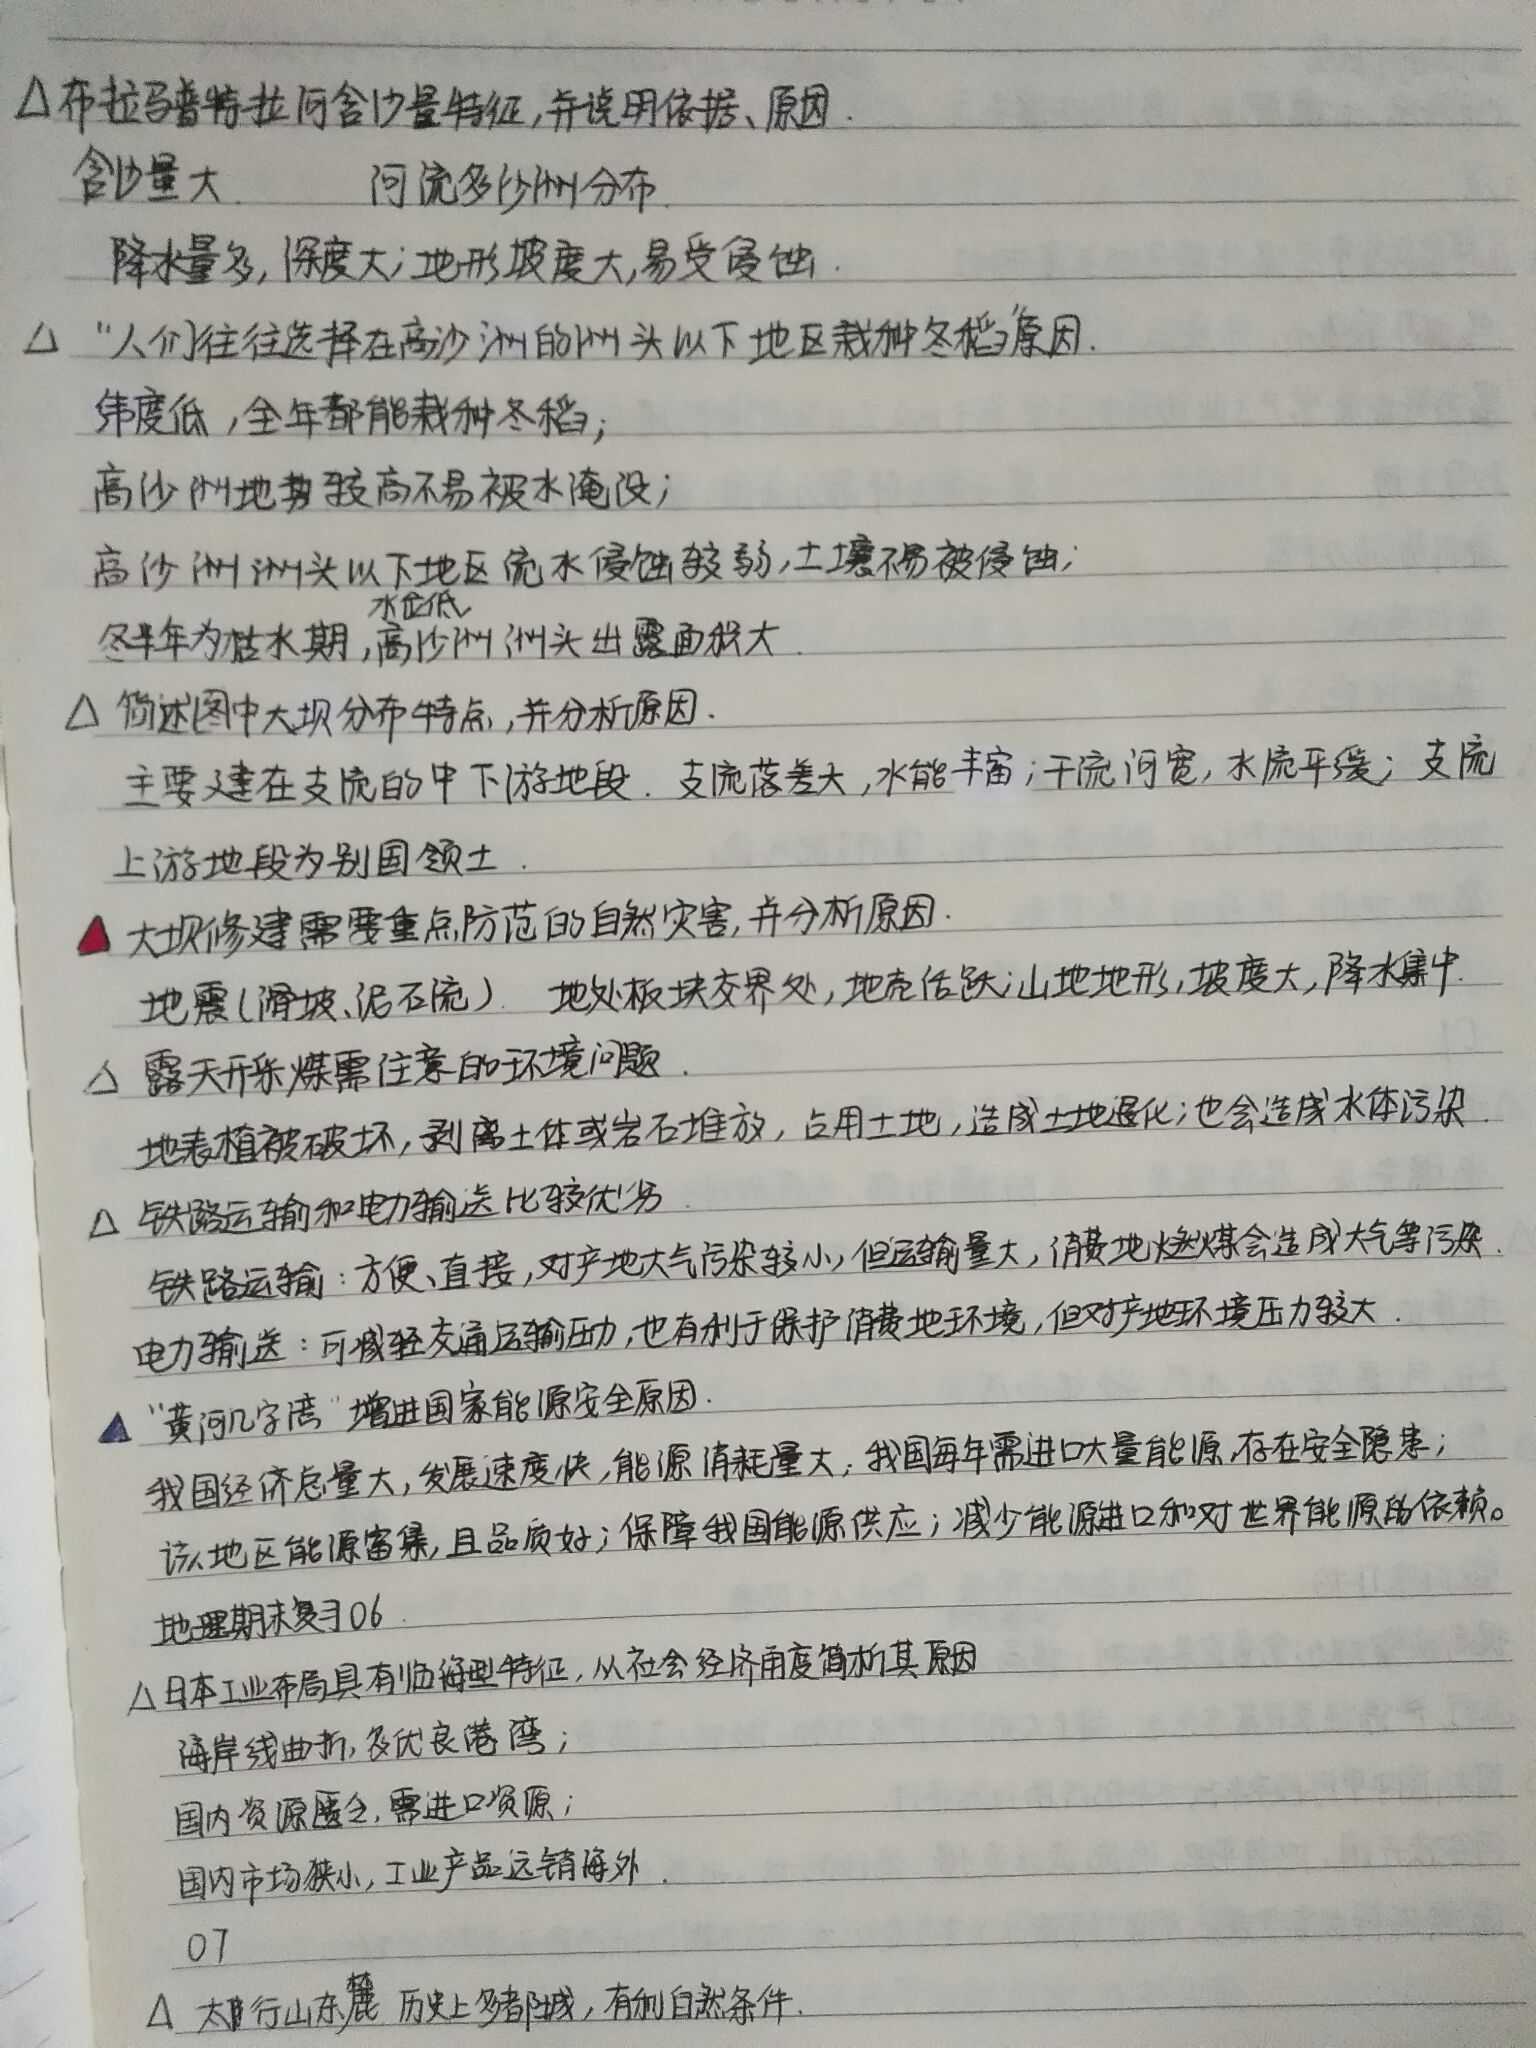 △布拉马普特拉河含沙量特征,并说明依据、原因.
含沙量大. 河流多沙洲分布.
降水量多,深度大;地形坡度大,易受侵蚀.
△ "人们往往选择在高沙洲的洲头以下地区栽种冬稻"原因.
纬度低,全年都能栽种冬稻;
高沙洲地势较高不易被水淹没;
高沙洲洲头以下地区流水侵蚀较弱,土壤不易被侵蚀;
水位低
冬半年为枯水期,高沙洲洲头出露面积大.
△ 简述图中大坝分布特点,并分析原因.
主要建在支流的中下游地段. 支流落差大,水能丰富;干流河宽,水流平缓;支流
上游地段为别国领土.
▲ 大坝修建需要重点防范的自然灾害,并分析原因.
地震(滑坡、泥石流). 地处板块交界处,地壳活跃;山地地形,坡度大,降水集中.
△ 露天开采煤需注意的环境问题.
地表植被破坏,剥离土体或岩石堆放,占用土地,造成土地退化;也会造成水体污染.
△ 铁路运输和电力输送比较优劣.
铁路运输:方便、直接,对产地大气污染较小,但运输量大,消费地燃煤会造成大气等污染.
电力输送:可减轻交通运输压力,也有利于保护消费地环境,但对产地环境压力较大.
▲ "黄河几字湾"增进国家能源安全原因.
我国经济总量大,发展速度快,能源消耗量大;我国每年需进口大量能源,存在安全隐患;
该地区能源富集,且品质好;保障我国能源供应;减少能源进口和对世界能源的依赖。
地理期末复习06.
△日本工业布局具有临海型特征,从社会经济角度简析其原因
海岸线曲折,多优良港湾;
国内资源匮乏,需进口资源;
国内市场狭小,工业产品远销海外.
07
△ 太行山东麓历史上多都城,有利自然条件.